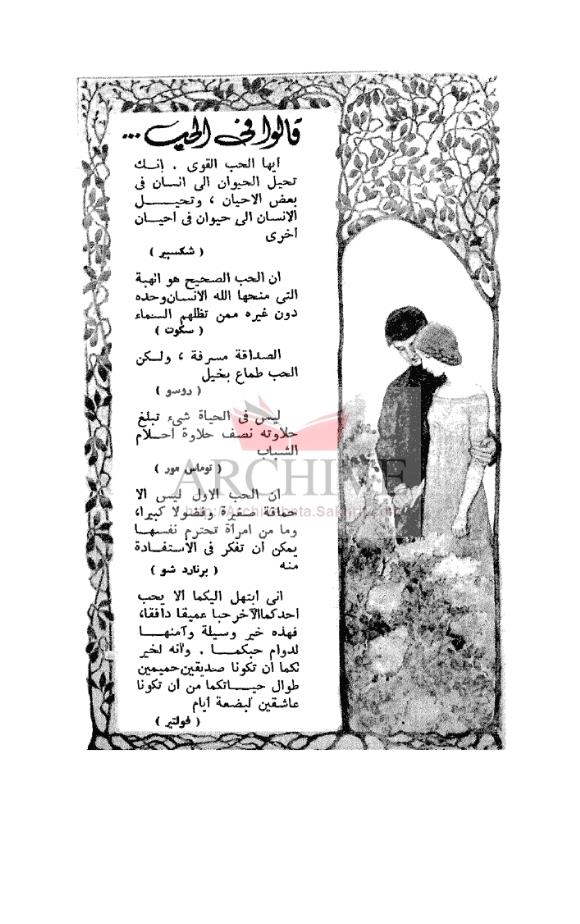 قالوا فى الحب ...
أيها الحب القوى . إنــك
تحيل الحيوان الى انسان فى
بعض الاحيان ، وتحيــــل
الانسان الى حيوان فى أحيـان
أخرى
( شكسبير )
ان الحب الصحيح هو الهبة
التى منحها الله الانسان وحده
دون غيره ممن تظلهم السماء
( سكوت )
الصداقة مسرفة ، ولـكن
الحب طماع بخيل
( روسو )
ليس فى الحياة شىء تبلغ
حلاوته نصف حلاوة أحـلام
الشباب
( توماس مور )
ARCHIVE
ان الحب الاول ليس الا
حماقة صغيرة وفضولا كبيرا،
وما من امرأة تحترم نفسهـا
يمكن أن تفكر فى الاستفـادة
منه
( برنارد شو )
انى أبتهل اليكما ألا يحب
أحدكما الآخر حبا عميقا دافقا،
فهذه خير وسيلة وآمنهـــا
لدوام حبكمــا . وانه لخير
لكما أن تكونا صديقين حميمين
طوال حيــاتكما من أن تكونا
عاشقين لبضعة أيام
( فولتير )